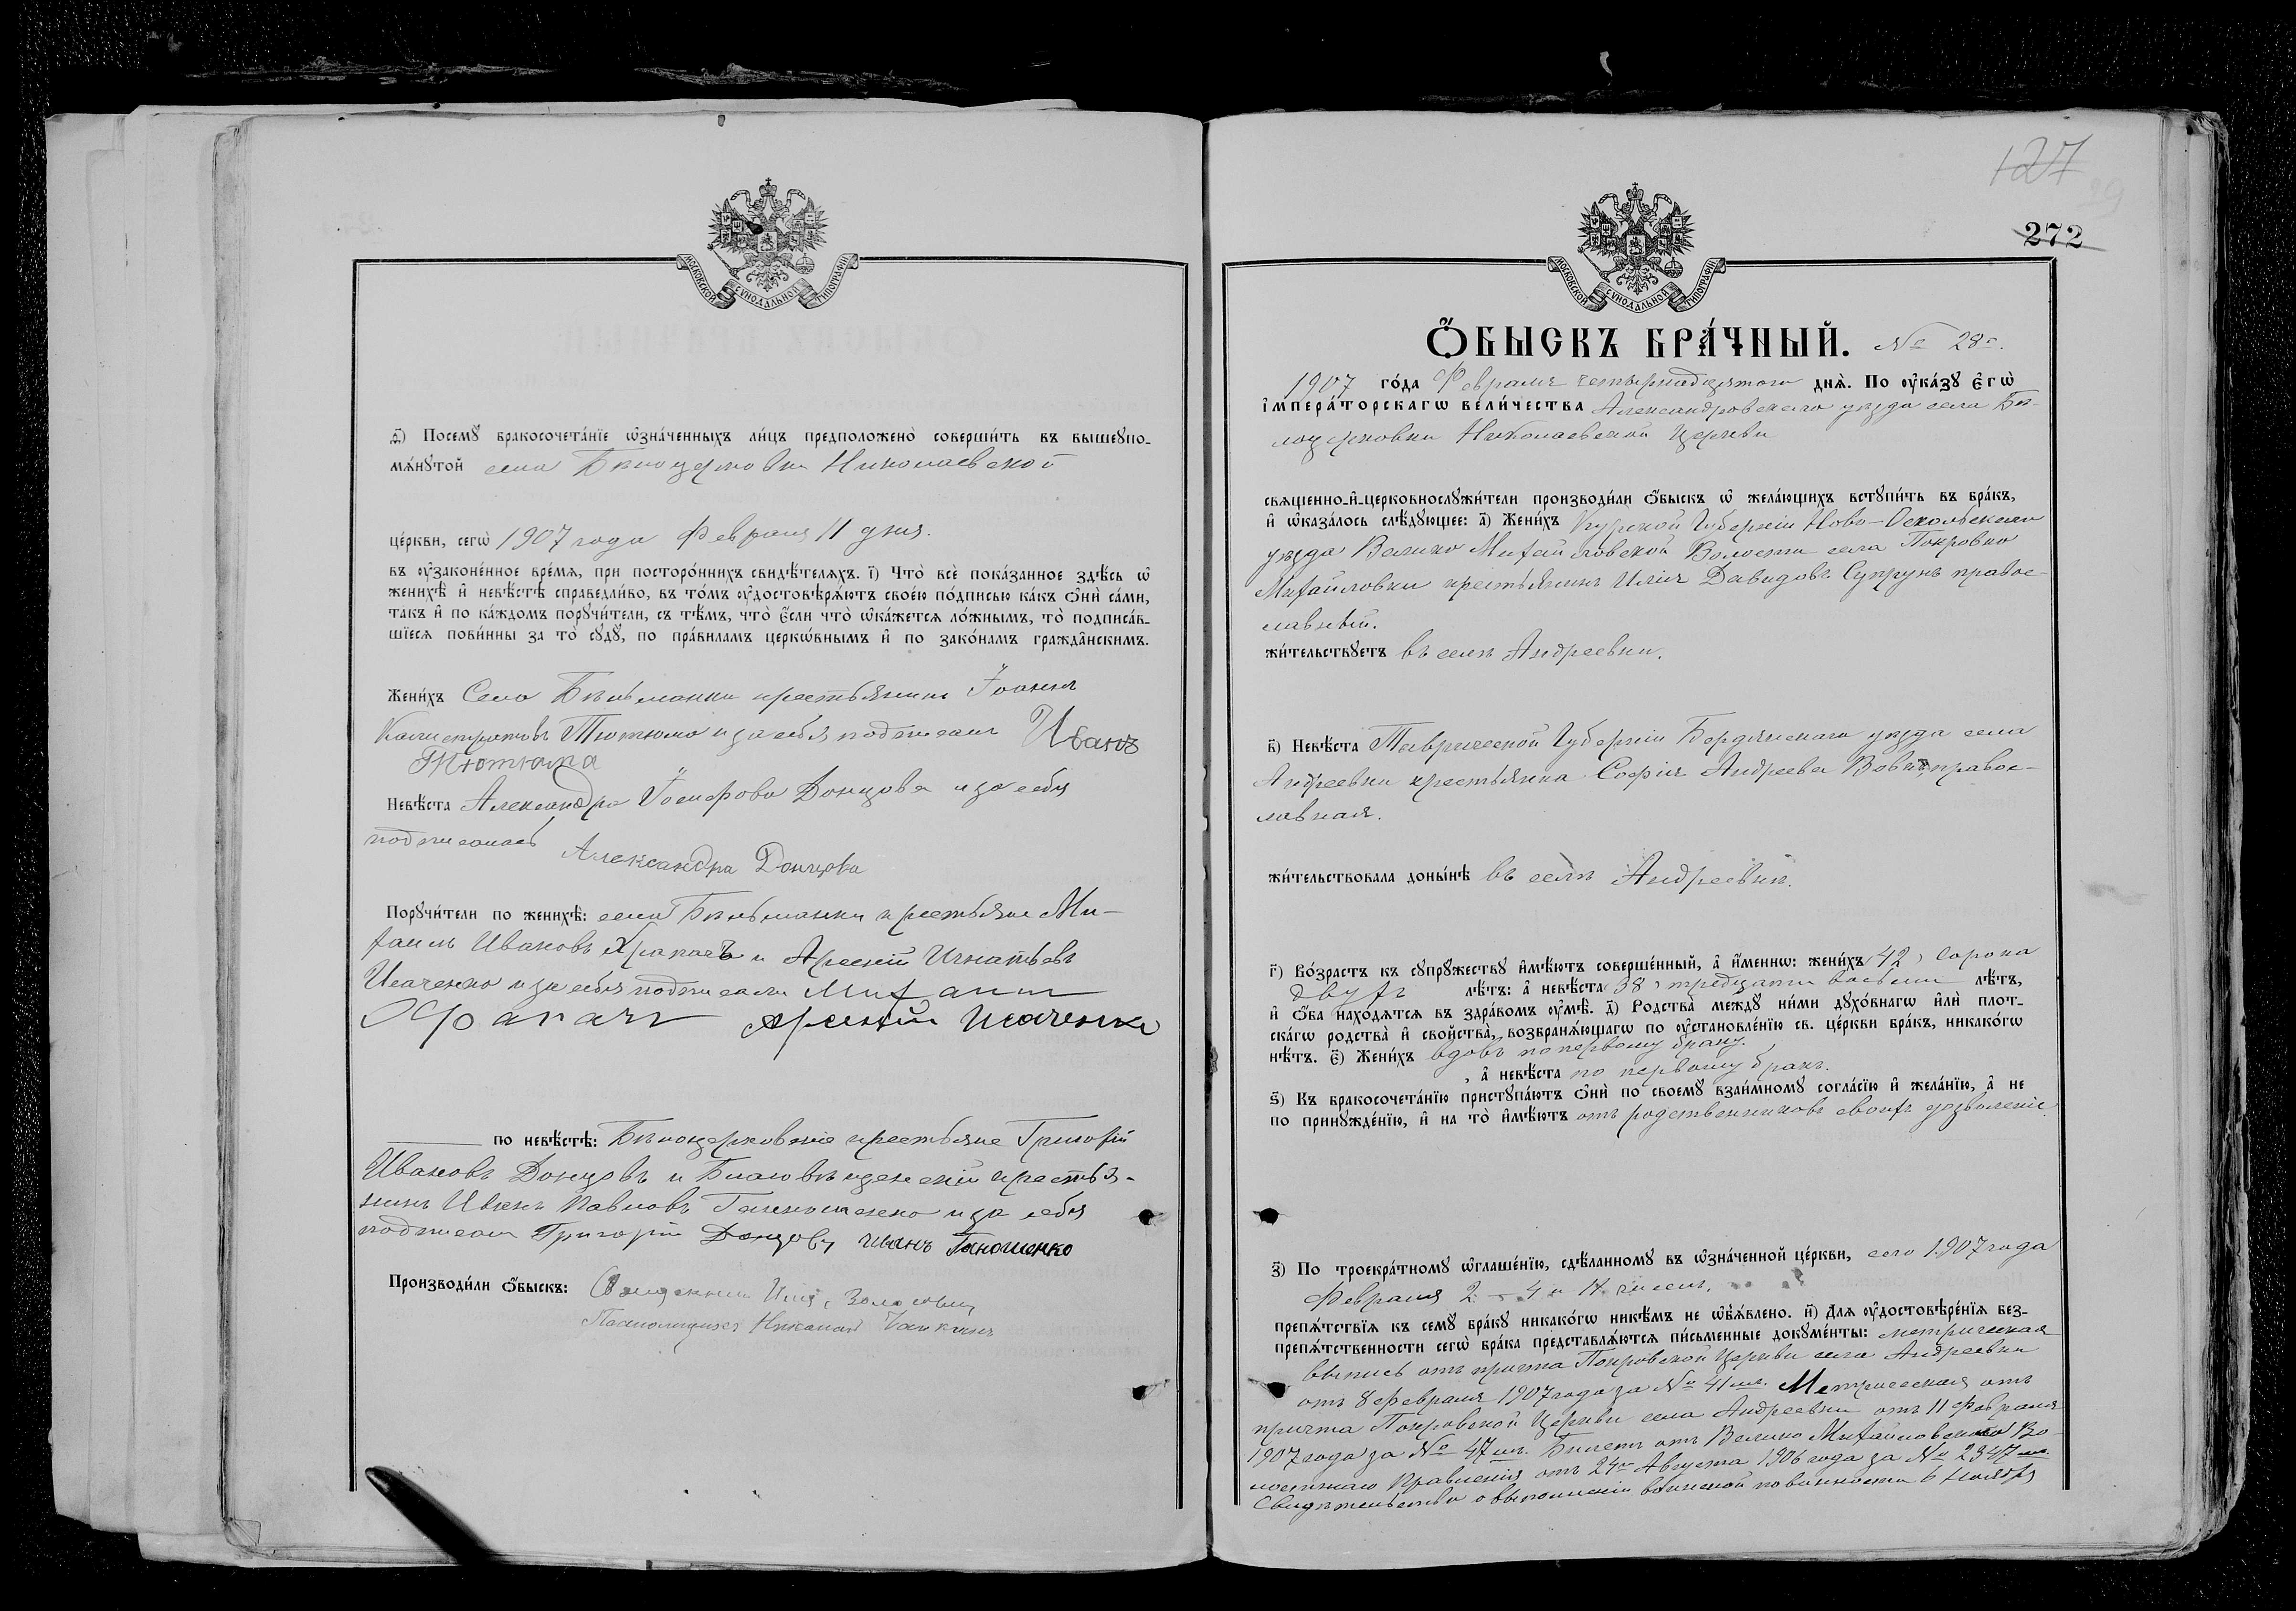 МОСКОВСКОЙ СѴНОДАЛЬНОЙ ТИПОГРАФІИ
ѳ҃) Посемꙋ̀ бракосочета́нїе ѡ҆зна́ченныхъ ли́цъ предположено̀ соверши́ть въ вышеꙋпо-
мѧ́нꙋтой села Бѣлоцерковки Николаевской
це́ркви, сегѡ̀ 1907 года Февраля 11 дня.
въ ᲂу҆зако́ненное вре́мѧ, при посторо́ннихъ свидѣ́телѧхъ. і҃) Что̀ всѐ пока́занное здѣ́сь ѡ҆
женихѣ̀ и҆ невѣ́стѣ справедли́во, въ то́мъ ᲂу҆достовѣрѧ́ютъ свое́ю по́дписью ка́къ ѻ҆нѝ са́ми,
та́къ и҆ по ка́ждомъ порꙋчи́тели, съ тѣ́мъ, что̀ є҆́сли что̀ ѡ҆ка́жетсѧ ло́жнымъ, то̀ подписа́в-
шїесѧ пови́нны за то̀ сꙋдꙋ̀, по пра́виламъ церко́внымъ и҆ по зако́намъ гражда́нскимъ.
Жени́хъ Села Бѣльманки крестьянинъ Іоаннъ
Калистратовъ Тютюма и за себя подписалъ Иванъ
Тютюма
Невѣ́ста Александра Іосифова Донцова и за себя
подписалась Александра Донцова
Порꙋчи́тели по женихѣ̀: села Бѣльманки крестьяне Ми-
хаилъ Ивановъ Храпачъ и Арсеній Игнатьевъ
Исаченко и за себя подписали Михаилъ
Храпачъ Арсеній Исаченко
по невѣ́стѣ: Бѣлоцерковскіе крестьяне Григорій
Ивановъ Донцовъ и Благовѣщенскій крестья-
нинъ Иванъ Павловъ Ганношенко и за себя
подписали Григорій Донцовъ Иванъ Ганошенко
Производи́ли ѻ҆́быскъ: Священникъ Илія
Псаломщикъ Николай
127
272
МОСКОВСКОЙ СѴНОДАЛЬНОЙ ТИПОГРАФІИ
Ѻ҆́БЫСКЪ БРА́ЧНЫЙ. № 28й.
1907 го́да Февраля четырнадцатого днѧ̀. По ᲂу҆ка́зꙋ Є҆гѡ̀
І҆мпера́торскагѡ вели́чества Александровскаго уѣзда села Бѣ-
лоцерковки Николаевской Церкви
свѧще́нно-и҆-церковнослꙋжи́тели производи́ли ѻ҆́быскъ ѡ҆ жела́ющихъ встꙋпи́ть въ бра́къ,
и҆ ѡ҆каза́лось слѣ́дꙋющее: а҃) Жени́хъ Курской Губерніи Ново-Оскольскаго
уѣзда Велико Михайловской Волости села Покровко
Михайловки крестьянинъ Илія Давидовъ Супрунъ правос-
лавный.
жи́тельствꙋетъ въ селѣ Андреевки.
в҃) Невѣ́ста Таврической Губерніи Бердянскаго уѣзда села
Андреевки крестьянка Софія Андреева правос-
лавная.
жи́тельствовала доны́нѣ въ селѣ Андреевки.
г҃) Во́зрастъ къ сꙋпрꙋ́жествꙋ и҆мѣ́ютъ соверше́нный, а҆ и҆́меннѡ: жени́хъ (42) сорока
двухъ лѣ́тъ: а҆ невѣ́ста 38 тридцати восьми лѣ́тъ,
и҆ ѻ҆́ба нахо́дѧтсѧ въ здра́вомъ ᲂу҆мѣ̀. д҃) Родства̀ междꙋ̀ ни́ми дꙋхо́внагѡ и҆лѝ плот-
ска́гѡ родства̀ и҆ свойства̀, возбранѧ́ющагѡ по ᲂу҆становле́нїю св. це́ркви бра́къ, никако́гѡ
нѣ́тъ. є҃) Жени́хъ вдовъ по первому браку.
, а҆ невѣ́ста по первому бракъ.
ѕ҃) Къ бракосочета́нїю пристꙋпа́ютъ ѻ҆нѝ по своемꙋ̀ взаи́мномꙋ согла́сїю и҆ жела́нїю, а҆ не
по принꙋжде́нїю, и҆ на то̀ и҆мѣ́ютъ отъ родственниковъ своихъ дозволеніе
з҃) По троекра́тномꙋ ѡ҆глаше́нїю, сдѣ́ланномꙋ въ ѡ҆зна́ченной це́ркви, сего 1907 года
Февраля 2 – 4 и 11 чиселъ,
препѧ́тствїѧ къ семꙋ̀ бра́кꙋ никако́гѡ никѣ́мъ не ѡ҆б̾ѧ́влено. и҃) Длѧ ᲂу҆достовѣре́нїѧ без-
препѧ́тственности сегѡ̀ бра́ка представлѧ́ютсѧ пи́сьменные докꙋме́нты: метрическая
выпись отъ причта Покровской Церкви села Андреевки
отъ 8 февраля 1907 года за № 41мъ. Метрическая отъ
причта Покровской Церкви села Андреевки отъ 11 Февраля
1907 года за № 47мъ. Билетъ отъ Велико Михайловскаго Во-
лостнаго Правленія отъ 24го Августа 1906 года за № 2347мъ
Свидѣтельство о выполненіи воинской повинности 6 Ноября